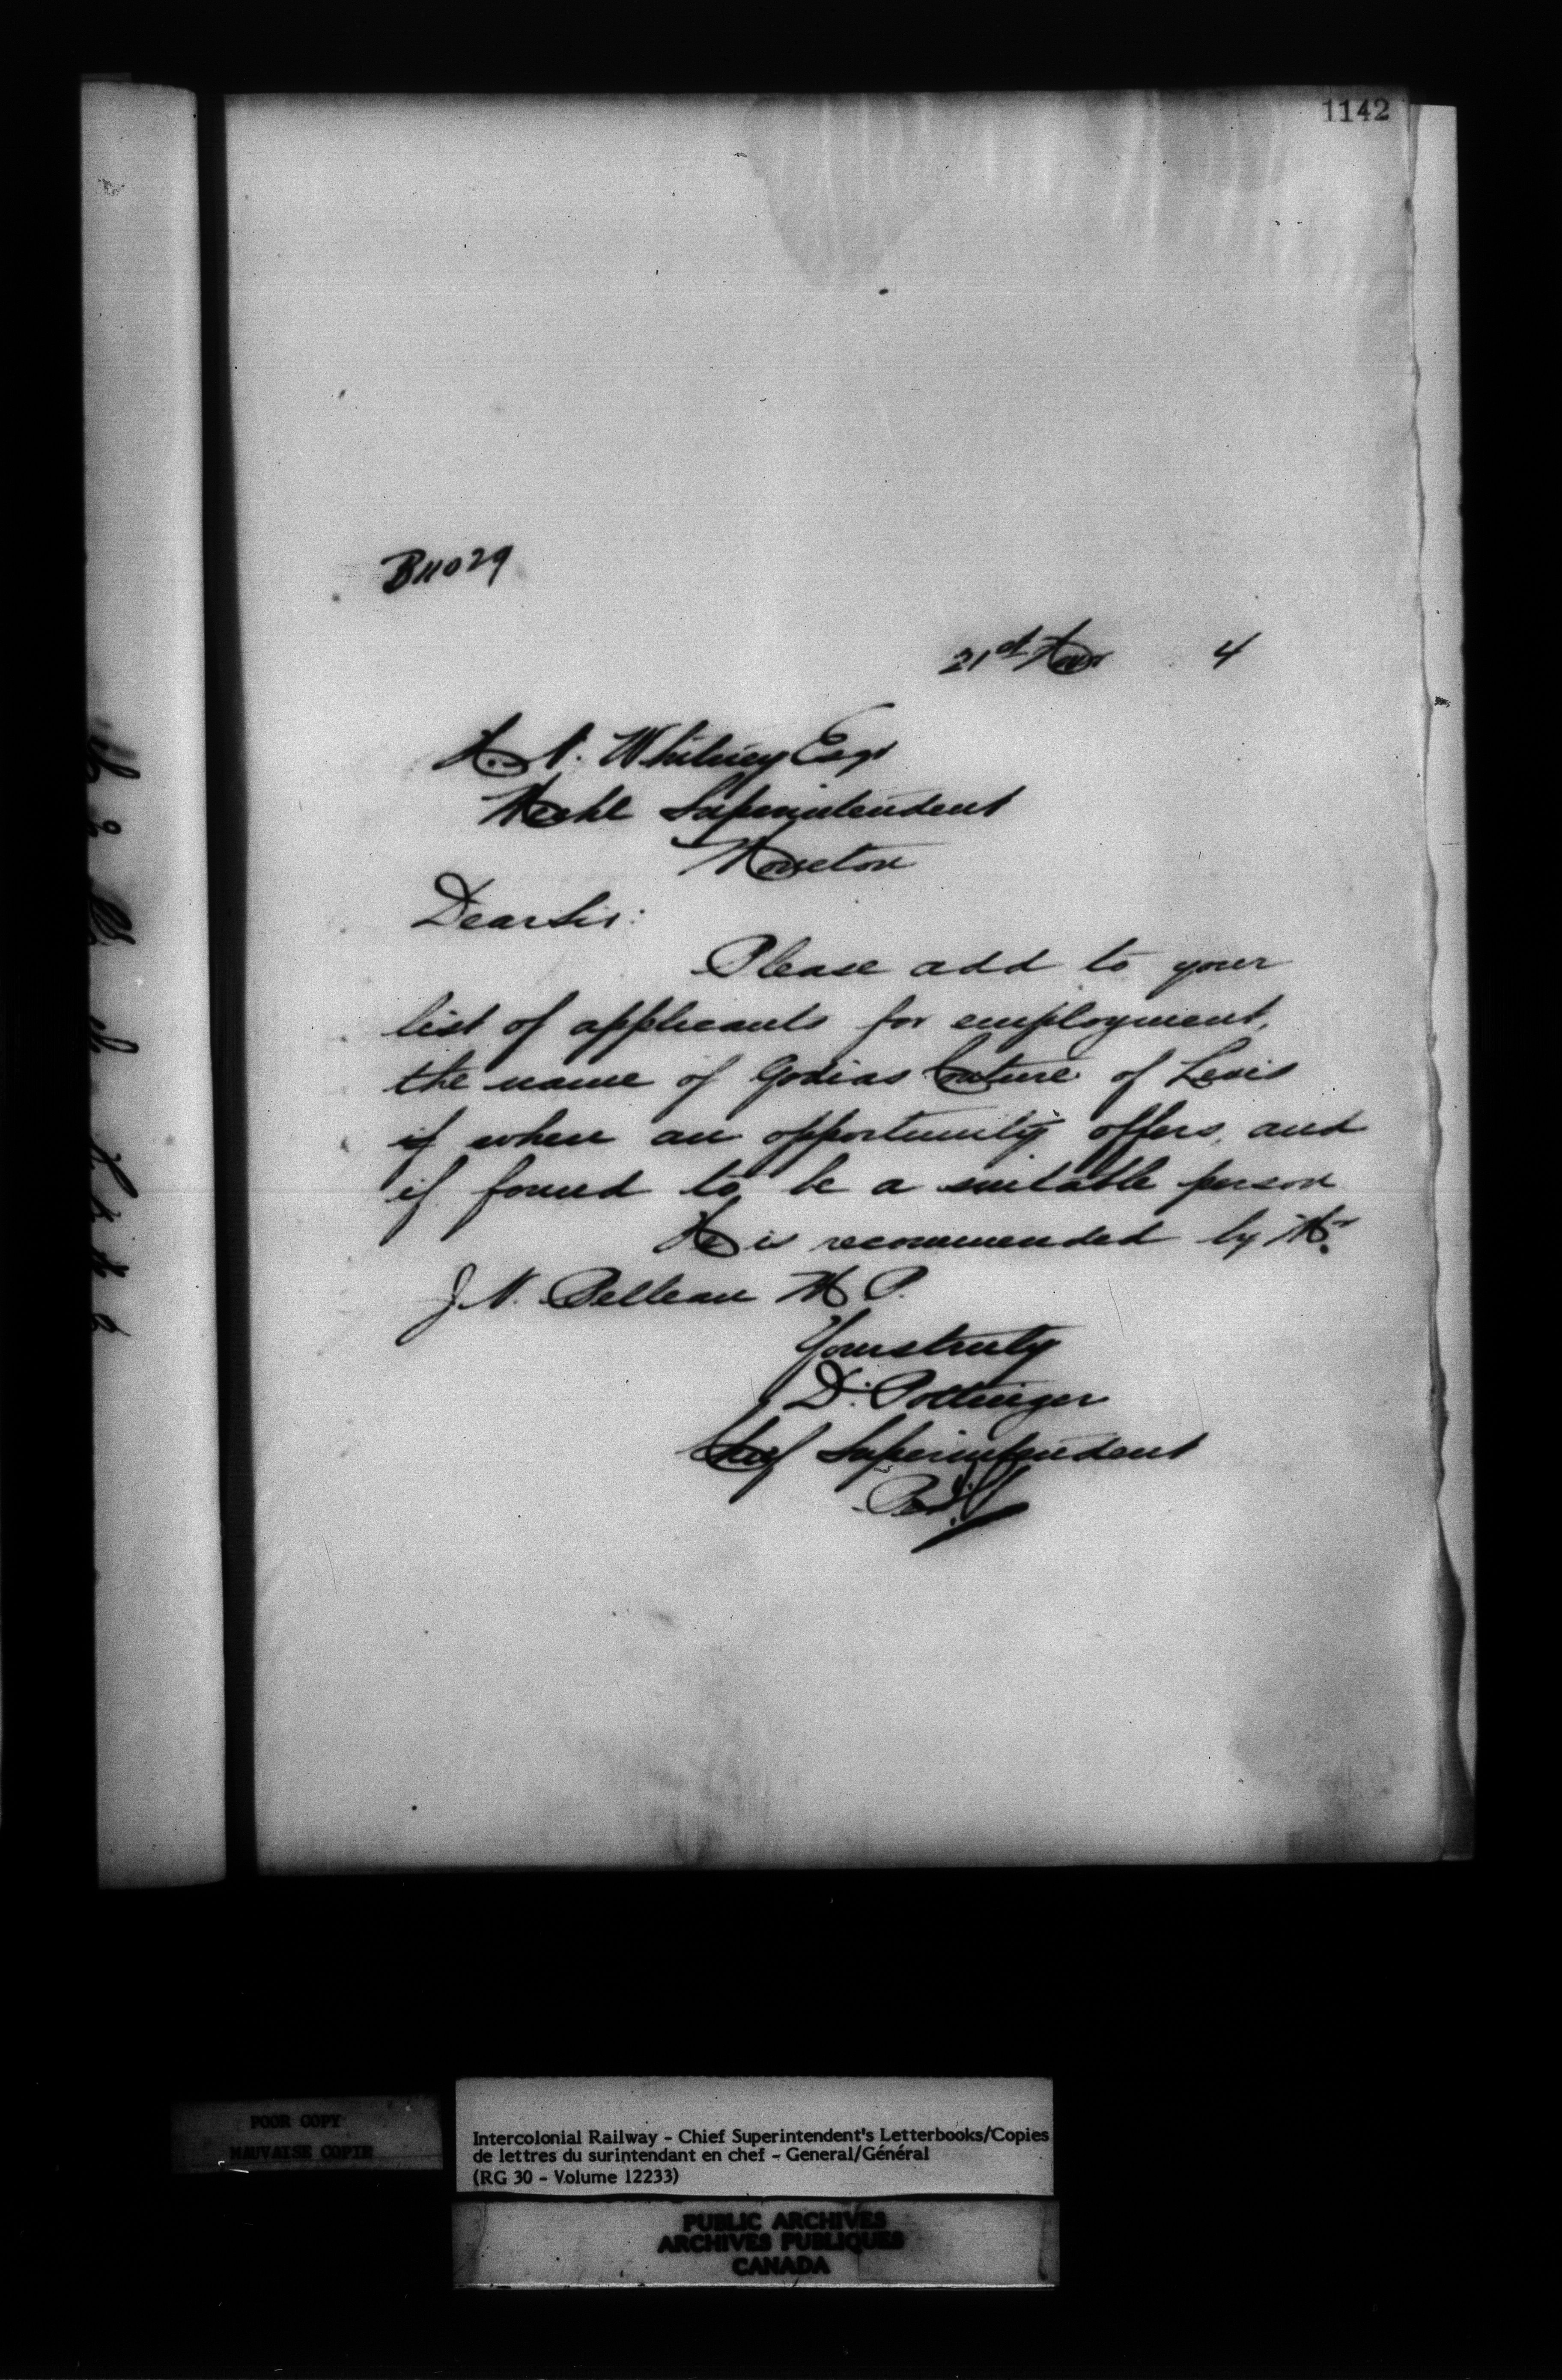 1142
B11029
21st Nov 4
H. A. Whitney Esqr
Mechl Superintendent
Moncton
Dear Sir:
Please add to your
list of applicants for employment,
the name of Godias Couture of Levis
if when an opportunity offers, and
if found to be a suitable person
He is recommended by Mr.
J. N. Belleau M P.
Yours truly
D. Pottinger
Chief Superintendent
POOR COPY
MAUVAISE COPIE
Intercolonial Railway - Chief Superintendent's Letterbooks/Copies
de lettres du surintendant en chef - General/Général
(RG 30 - Volume 12233)
PUBLIC ARCHIVES
ARCHIVES PUBLIQUES
CANADA